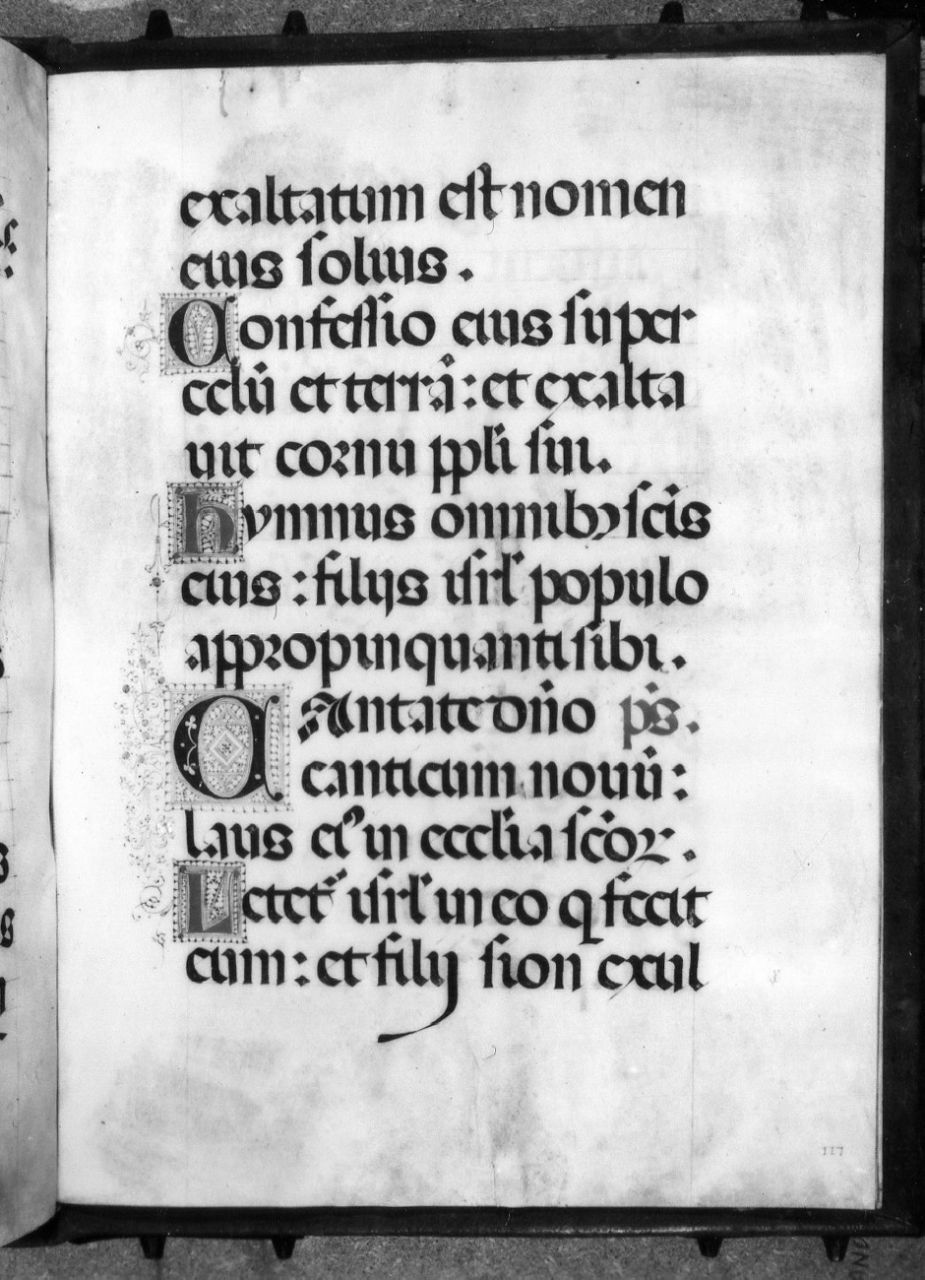 exaltatum est nomen
eius solius.
Confessio eius super
celū et terrā: et exalta
uit cornu ppli sui.
hymnus omnibꝫ scis
eius: filijs isrl populo
appropinquanti sibi.
CAntate dño ps.
canticum nouū:
laus ei⁹ in ecclia scoꝝ.
Letet᷑ isrl in eo q fecit
eum: et filij sion exul
117